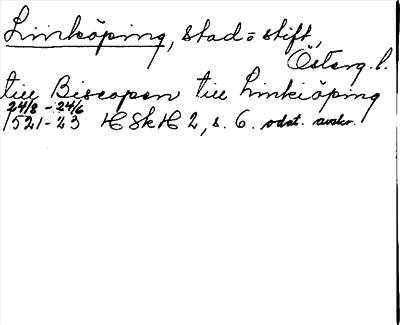 Linköping, stad = stift,
Österg. l.
till Biscopen till Linkiöping
24/8 - 24/6
1521-23 HSkH 2, s. 6. odat. avskr.